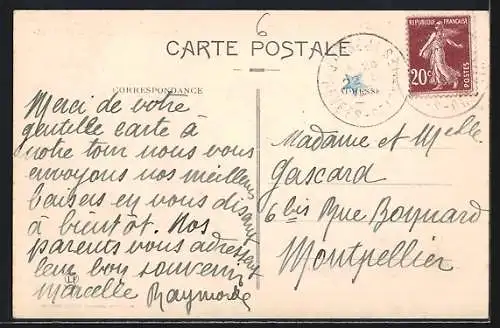 6
CARTE POSTALE
CORRESPONDANCE
Merci de votre
gentille carte à
notre tour nous vous
envoyons nos meilleurs
baisers en vous disant
à bientôt. Nos
parents vous adressent
leur bon souvenir
Marcelle Raymonde
RÉPUBLIQUE FRANÇAISE
20c
POSTES
Madame et Melle
Gascard
6 bis Rue Boynard
Montpellier